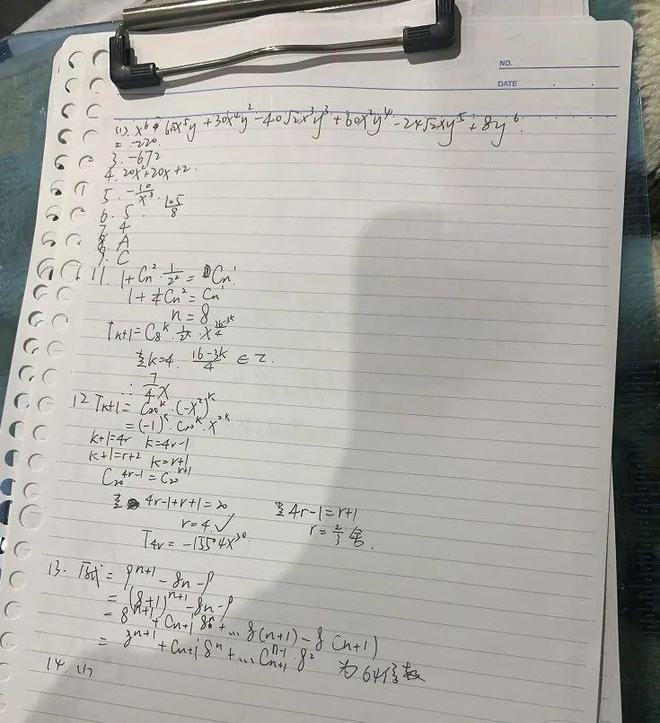 NO.
DATE
(1). x⁶ - 6√2x⁵y + 30x⁴y² - 40√2x³y³ + 60x²y⁴ - 24√2xy⁵ + 8y⁶
= -220.
3. -672
4. 20x²+20x+2.
5. -10/x³.
6. 5. 105/8
7. 4
8. A
9. C
11. 1+Cn²·1/2² = Cn¹.
1+¼Cn² = Cn¹
n = 8
Tk+1 = C8ᵏ · x^(16-3k)/4
k=4. (16-3k)/4 ∈ Z.
∴ 7/4 x
12 Tk+1 = C20ᵏ·(-x²)ᵏ
= (-1)ᵏ·C20ᵏ·x²ᵏ
k+1=4r k=4r-1
k+1=r+2 k=r+1
C20⁴ʳ⁻¹ = C20ʳ⁺¹
4r-1+r+1=20 4r-1=r+1
r=4 ✓ r=2/3 舍.
T4r = -15504x³⁰
13. 原式 = 9ⁿ⁺¹ - 8n - 9
= (8+1)ⁿ⁺¹ - 8n - 9
= 8ⁿ⁺¹ + Cn+1¹ 8ⁿ + ... 8(n+1) - 8(n+1)
= 8ⁿ⁺¹ + Cn+1¹ 8ⁿ + ... Cn+1ⁿ⁻¹·8² 为64倍数
14. (1)